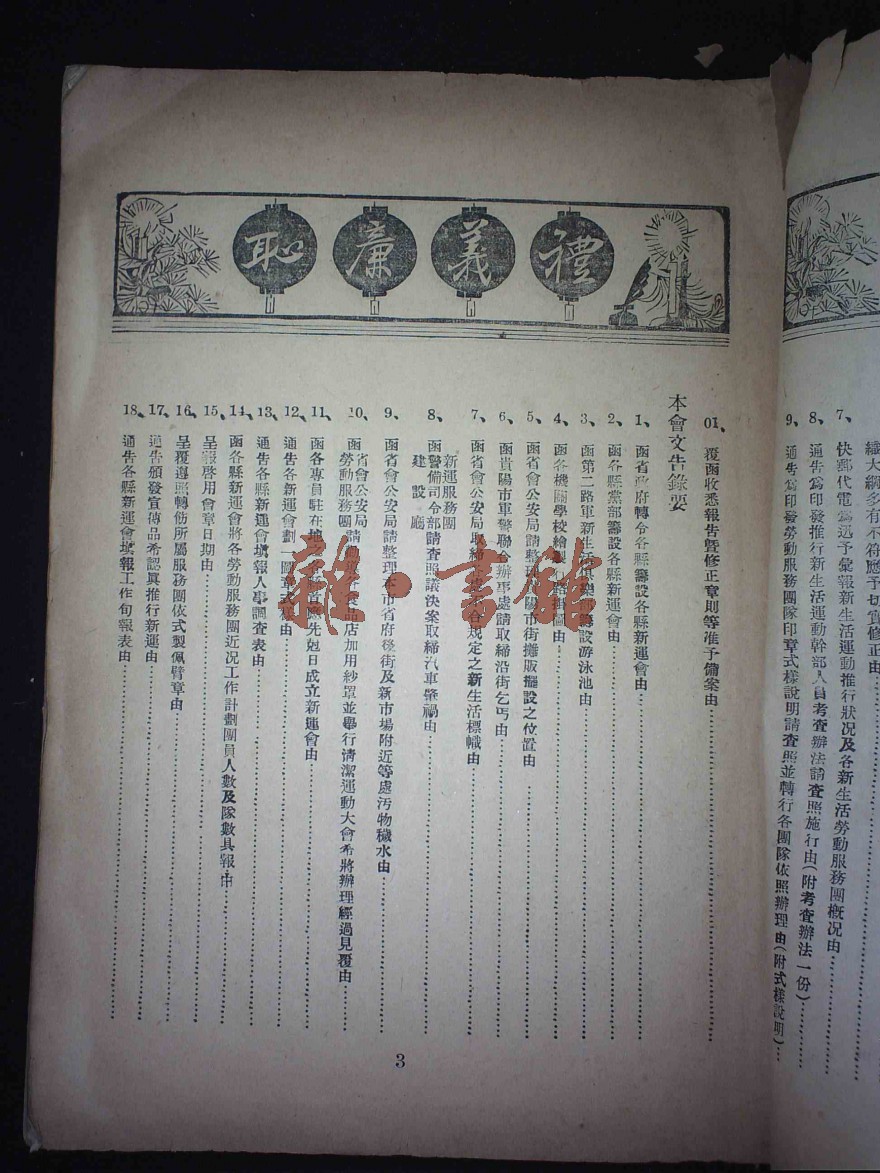 禮義廉恥
01、覆函收悉報告暨修正章則等准予備案由
本會文告錄要
1、函省政府轉令各縣籌設各縣新運會由
2、函各縣黨部籌設各縣新運會由
3、函第二路軍新生活俱樂籌設游泳池由
4、函各機關學校繪製路掛圖由
5、函省會公安局請整理貴陽市街攤販擺設之位置由
6、函貴陽市軍警聯合辦事處請取締沿街乞丐由
7、函省會公安局取締合規定之新生活標幟由
8、函新運服務團警備司令部建設廳請查照議決案取締汽車肇禍由
9、函省會公安局請整理本市省府後街及新市場附近等處污物穢水由
10、函省會公安局勞動服務團請食品店加用紗罩並舉行清潔運動大會希將辦理經過見覆由
11、函各專員駐在地之各縣首應先尅日成立新運會由
12、通告各新運會劃一圖章式樣由
13、通告各縣新運會填報人事調查表由
14、函各縣新運會將各勞動服務團近況工作計劃團員人數及隊數具報由
15、呈報啓用會章日期由
16、呈覆遵照轉飭所屬服務團依式製佩臂章由
17、通告頒發宣傳品希認眞推行新運由
18、通告各縣新運會填報工作旬報表由
3
織大綱多有不符應予切實修正由
7、快郵代電爲迅予彙報新生活運動推行狀況及各新生活勞動服務團概況由
8、通告爲印發推行新生活運動幹部人員考查辦法請查照施行由(附考查辦法一份)
9、通告爲印發勞動服務團隊印章式樣說明請查照並轉行各團隊依照辦理由(附式樣說明)
雜·書館